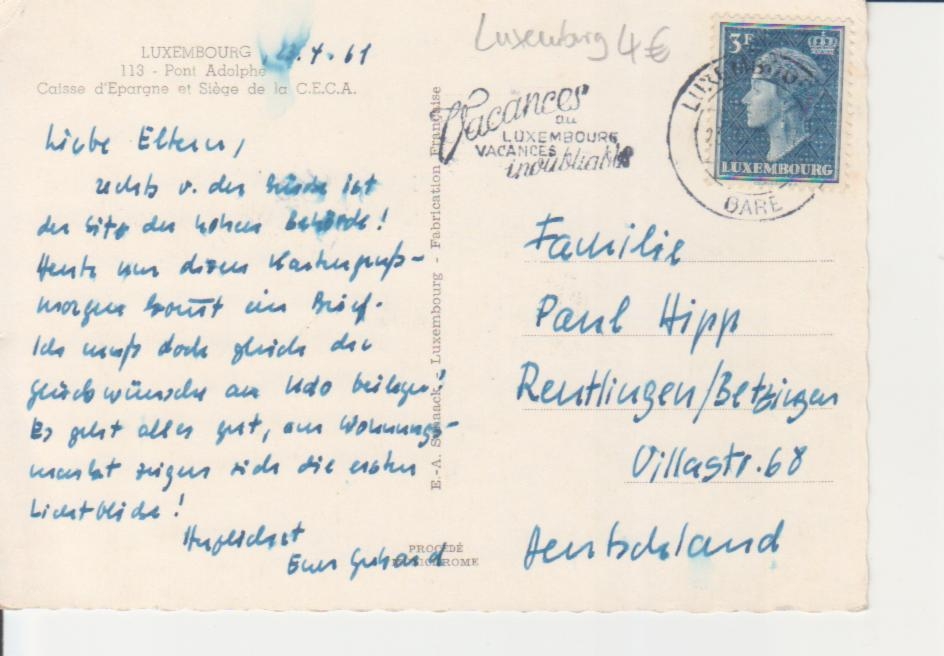 LUXEMBOURG
113 - Pont Adolphe
Caisse d'Epargne et Siège de la C.E.C.A.
.4.61
Luxemburg 4 €
Vacances
au
LUXEMBOURG
VACANCES
inoubliables
3F
LUXEMBOURG
GARE
Liebe Eltern,
rechts v. der Brücke ist
der Sitz der hohen Behörde!
Heute nur diesen Kartengruß -
morgen kommt ein Brief.
Ich muß doch gleich die
Glückwünsche an Udo beilegen!
Es geht alles gut, am Wohnungs-
markt zeigen sich die ersten
Lichtblicke!
Herzlichst
Euer Gerhard
E.-A. Schaack - Luxembourg - Fabrication Française
PROCÉDÉ
Familie
Paul Hipp
Reutlingen/Betzingen
Villastr. 68
Deutschland